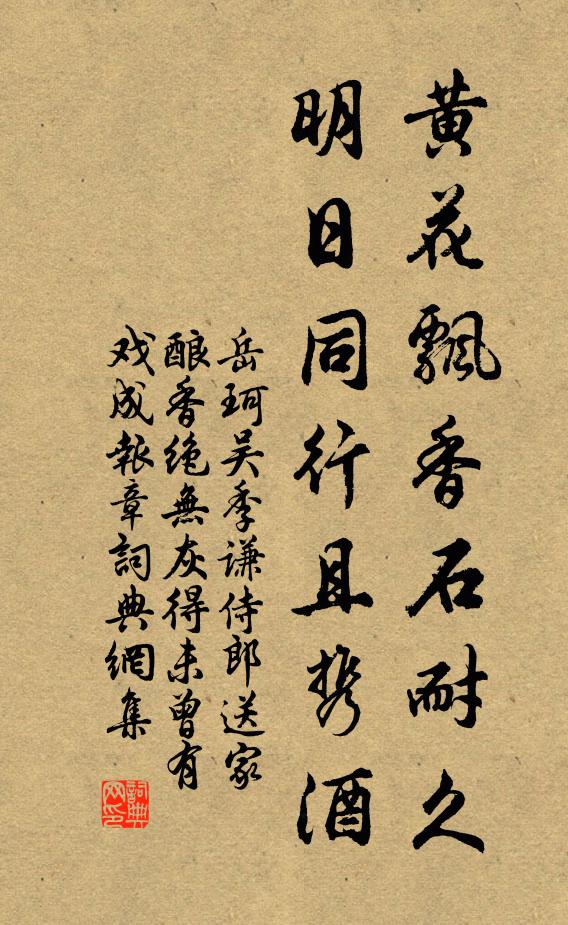 黄花飄香石耐久
明日同行且携酒
岳珂吴季謙侍郎送家
酿香绝無灰得未曾有
戏成報章詞典網集
詞典网印